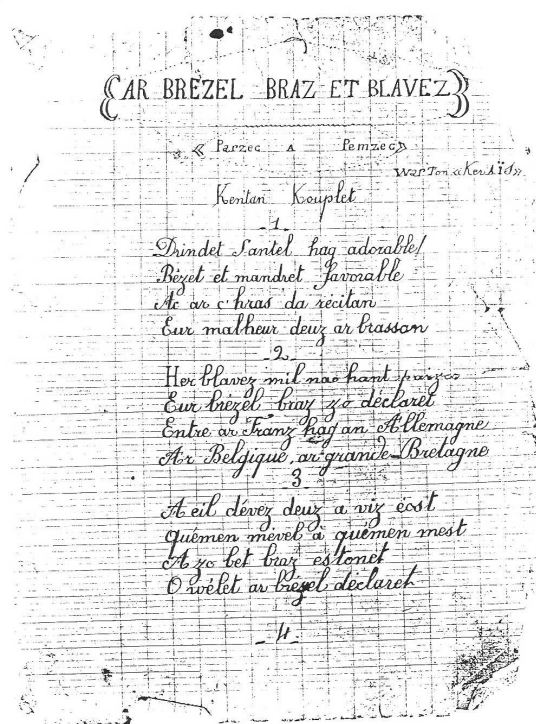 AR BRÉZEL BRAZ ET BLAVEZ
« Parzec A Pemzec »
War Ton « Ker Aïs ».
Kentan Kouplet
_ 1 _
Drindet Santel hag adorable !
Bézet et mandret favorable
Ac ar c'hras da récitan
Eur malheur deuz ar brassan
_ 2 _
Her blavez mil nao hant parzec
Eur brézel braz zo déclaret
Entre ar Franz hag an Allemagne
Ar Belgique, ar grande-Bretagne
3
A eil dévez deuz a viz éost
Quémen mevel à quémen mest
A zo bet braz estonet
O wélet ar brézel déclaret
_ 4 _